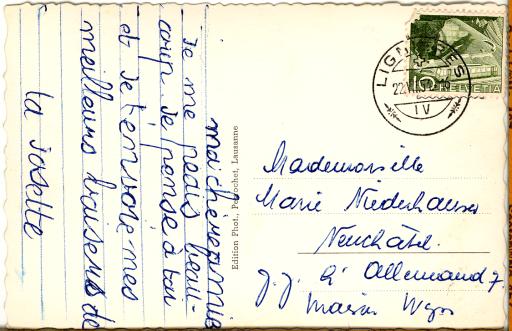 ma chère amie
Je me plais beau-
coup. Je pense à toi
et je t'envoie mes
meilleurs baisers de
la Josette
Edition Phot. Perrochet, Lausanne
LIGNIÈRES
IV
HELVETIA
Mademoiselle
Marie Niederhauser
Neuchâtel.
J.J. L'Allemand 7